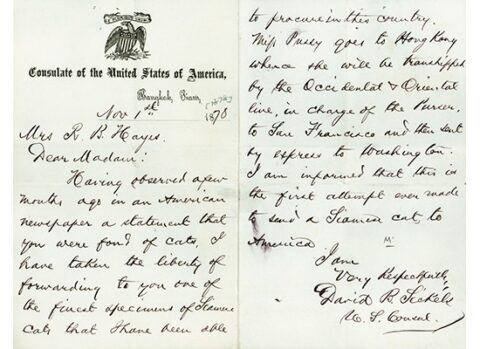 Consulate of the United States of America,
Bangkok, Siam,
Nov 1st 1878
Mrs R. B. Hayes.
Dear Madam:
Having observed a few
months ago in an American
newspaper a statement that
you were fond of cats, I
have taken the liberty of
forwarding to you one of
the finest specimens of Siamese
cats that I have been able
to procure in this country.
Miss Pussy goes to Hong Kong
where she will be transhipped
by the Occidental & Oriental
line, in charge of the Purser,
to San Francisco and then sent
by express to Washington.
I am informed that this is
the first attempt ever made
to send a Siamese cat to
America.
I am
Very Respectfully,
David B. Sickels
U. S. Consul.